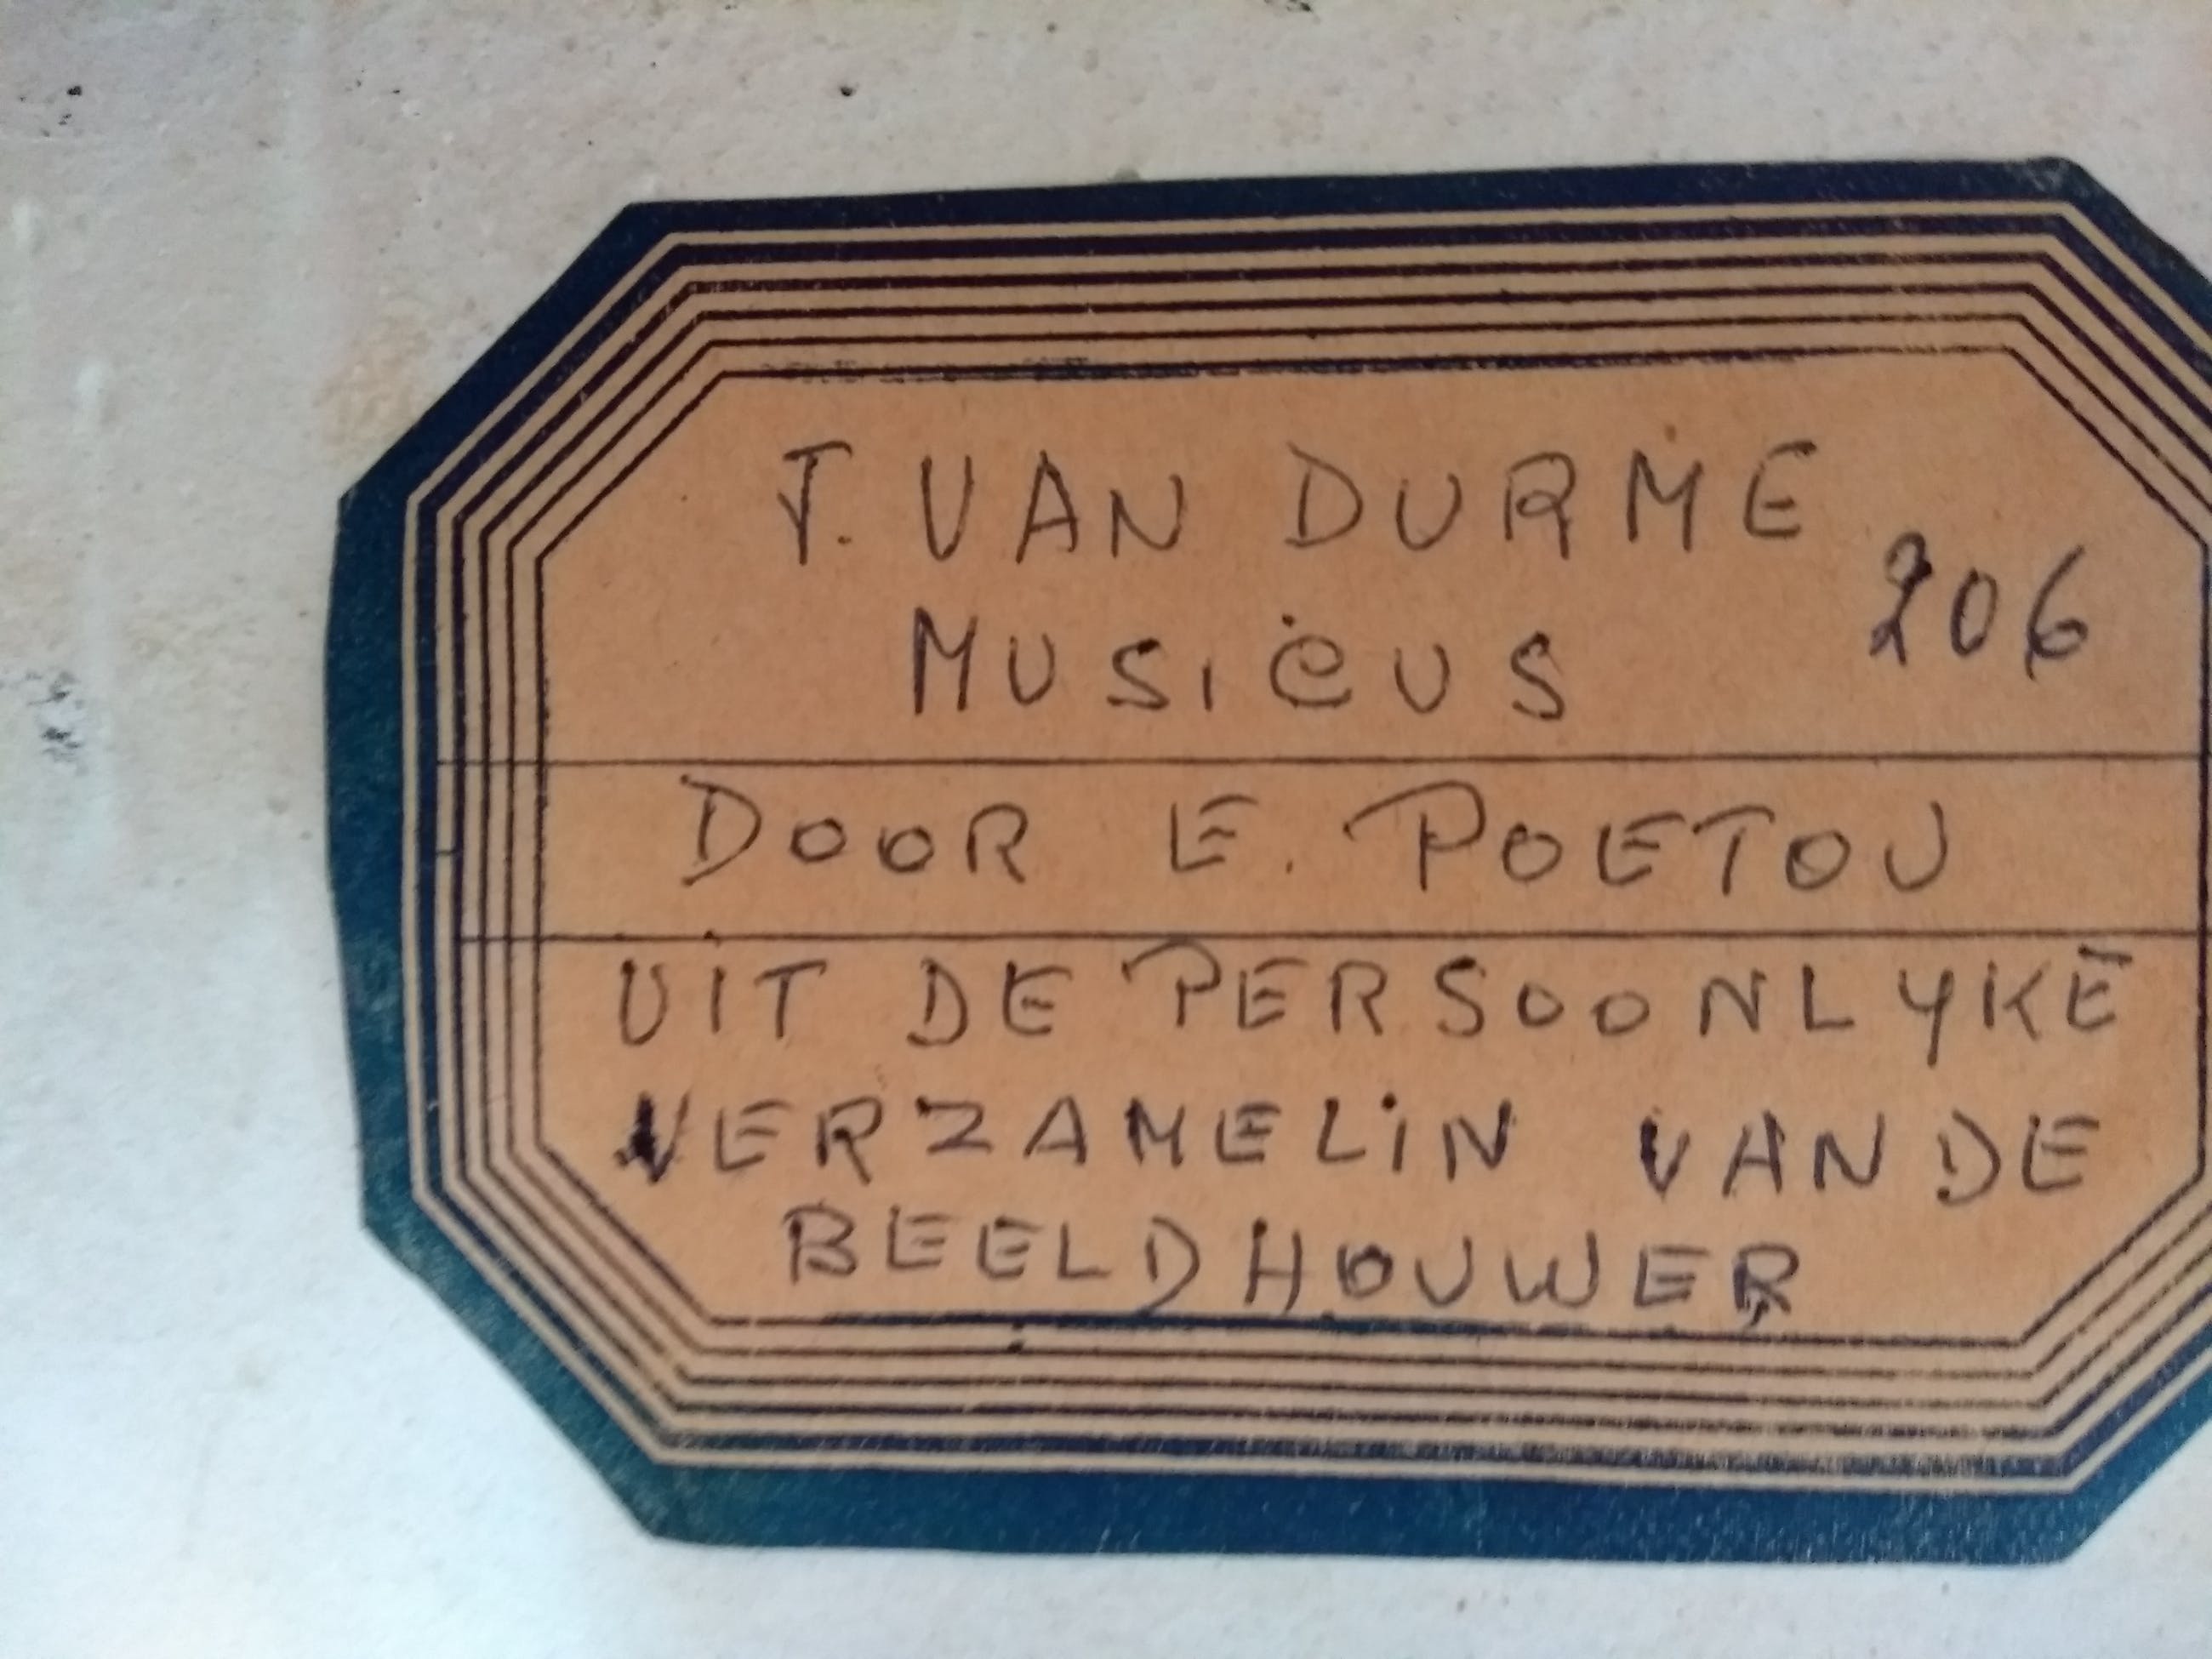 J. VAN DURME
206
MUSICUS
DOOR E. POETOU
UIT DE PERSOONLYKE
VERZAMELIN VAN DE
BEELDHOUWER